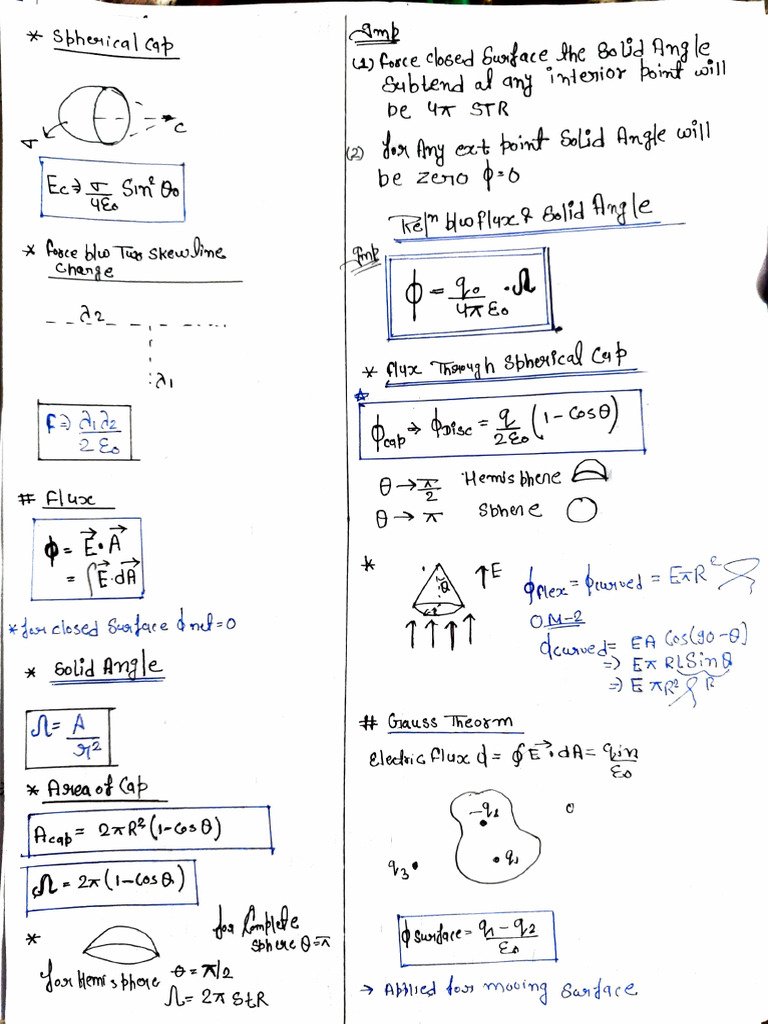 * Spherical Cap
σ
C
Ec ⇒ σ/4ε₀ Sin²θ₀
* force b/w Two skew line
Charge
λ2
λ1
F ⇒ λ1λ2/2ε₀
# flux
ϕ = E⃗·A⃗
= ∫E⃗·dA⃗
* for closed Surface ϕ net = 0
* Solid Angle
Ω = A/r²
* Area of Cap
Acap = 2πR²(1-Cosθ)
Ω = 2π(1-Cosθ)
*
for Complete
sphere θ=π
for Hemisphere θ = π/2
Ω = 2π StR
Imp
(1) force closed Surface the Solid Angle
Subtend at any interior point will
be 4π STR
(2) for Any ext point Solid Angle will
be zero ϕ=0
Relⁿ b/w flux & Solid Angle
Imp
ϕ = q₀/4πε₀ · Ω
* flux Through Spherical Cap
ϕcap → ϕDisc = q/2ε₀ (1 - Cosθ)
θ → π/2 Hemisphere
θ → π Sphere
*
θ
↑E
ϕflex = ϕcurved = EπR²
O.M-2
ϕcurved = EA Cos(90-θ)
⇒ Eπ RLSinθ
R
⇒ E πR²
# Gauss Theorm
Electric flux ϕ = ∮E⃗·dA = qin/ε₀
-q2
q3
q1
ϕsurface = q1 - q2/ε₀
→ Applied for moving Surface